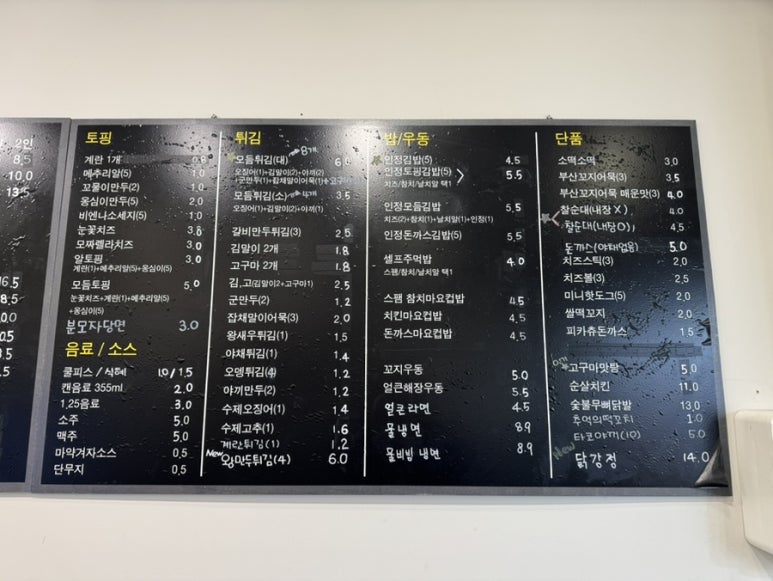 2인
8,5
10,0
13,5
16.5
8.5
0.0
0.5
3.5
0.5
토핑
계란 1개 0.8
메추리알(5) 1,0
꼬물이만두(2) 1,0
옹심이만두(5) 2,0
비엔나소세지(5) 1,0
눈꽃치즈 3.0
모짜렐라치즈 3,0
알토핑 3.0
계란(1)+메추리알(5)+옹심이(5)
모듬토핑 5,0
눈꽃치즈+계란(1)+메추리알(5)
+옹심이(5)
분모자당면 3.0
음료 / 소스
쿨피스 / 식혜 1.0 / 1.5
캔음료 355ml 2.0
1,25음료 3,0
소주 5,0
맥주 5,0
마약겨자소스 0,5
단무지 0,5
튀김
모듬튀김(대) → 8개 6,0
오징어(1)+김말이(2)+야끼(2)
+군만두(1)+잡채말이어묵(1)+고구마(1)
모듬튀김(소) → 4개 3.5
오징어(1)+김말이(2)+야끼(1)
갈비만두튀김(3) 2,5
김말이 2개 1.8
고구마 2개 1.8
김,고(김말이2+고구마1) 2.5
군만두(2) 1,2
잡채말이어묵(3) 2.0
왕새우튀김(1) 1,5
야채튀김(1) 1.4
오엥튀김(4) 1.2
야끼만두(2) 1.2
수제오징어(1) 1.4
수제고추(1) 1.6
계란튀김(1) 1.2
New 왕만두튀김(4) 6.0
밥/우동
인정김밥(5) 4.5
인정토핑김밥(5) > 5.5
치즈/참치/날치알 택1
인정모듬김밥 5,5
치즈(2)+참치(1)+날치알(1)+인정(1)
인정돈까스김밥(5) 5,5
셀프주먹밥 4.0
스팸/참치/날치알 택1
스팸 참치마요컵밥 4.5
치킨마요컵밥 4.5
돈까스마요컵밥 4.5
꼬지우동 5.0
얼큰해장우동 5.5
얼큰라면 4.5
물냉면 8.9
물비빔 냉면 8.9
단품
소떡소떡 3,0
부산꼬지어묵(3) 3.5
부산꼬지어묵 매운맛(3) 4.0
찰순대(내장 X) 4.0
찰순대(내장O) 4,5
돈까스(야채없음) 5.0
치즈스틱(3) 2,5
치즈볼(3) 2,5
미니핫도그(5) 2,0
쌀떡꼬지 2.0
피카츄돈까스 1.5
고구마맛탕 5.0
순살치킨 11.0
숯불무뼈닭발 13,0
추억의떡꼬치 1.0
타코야끼(10) 5.0
New 닭강정 14.0